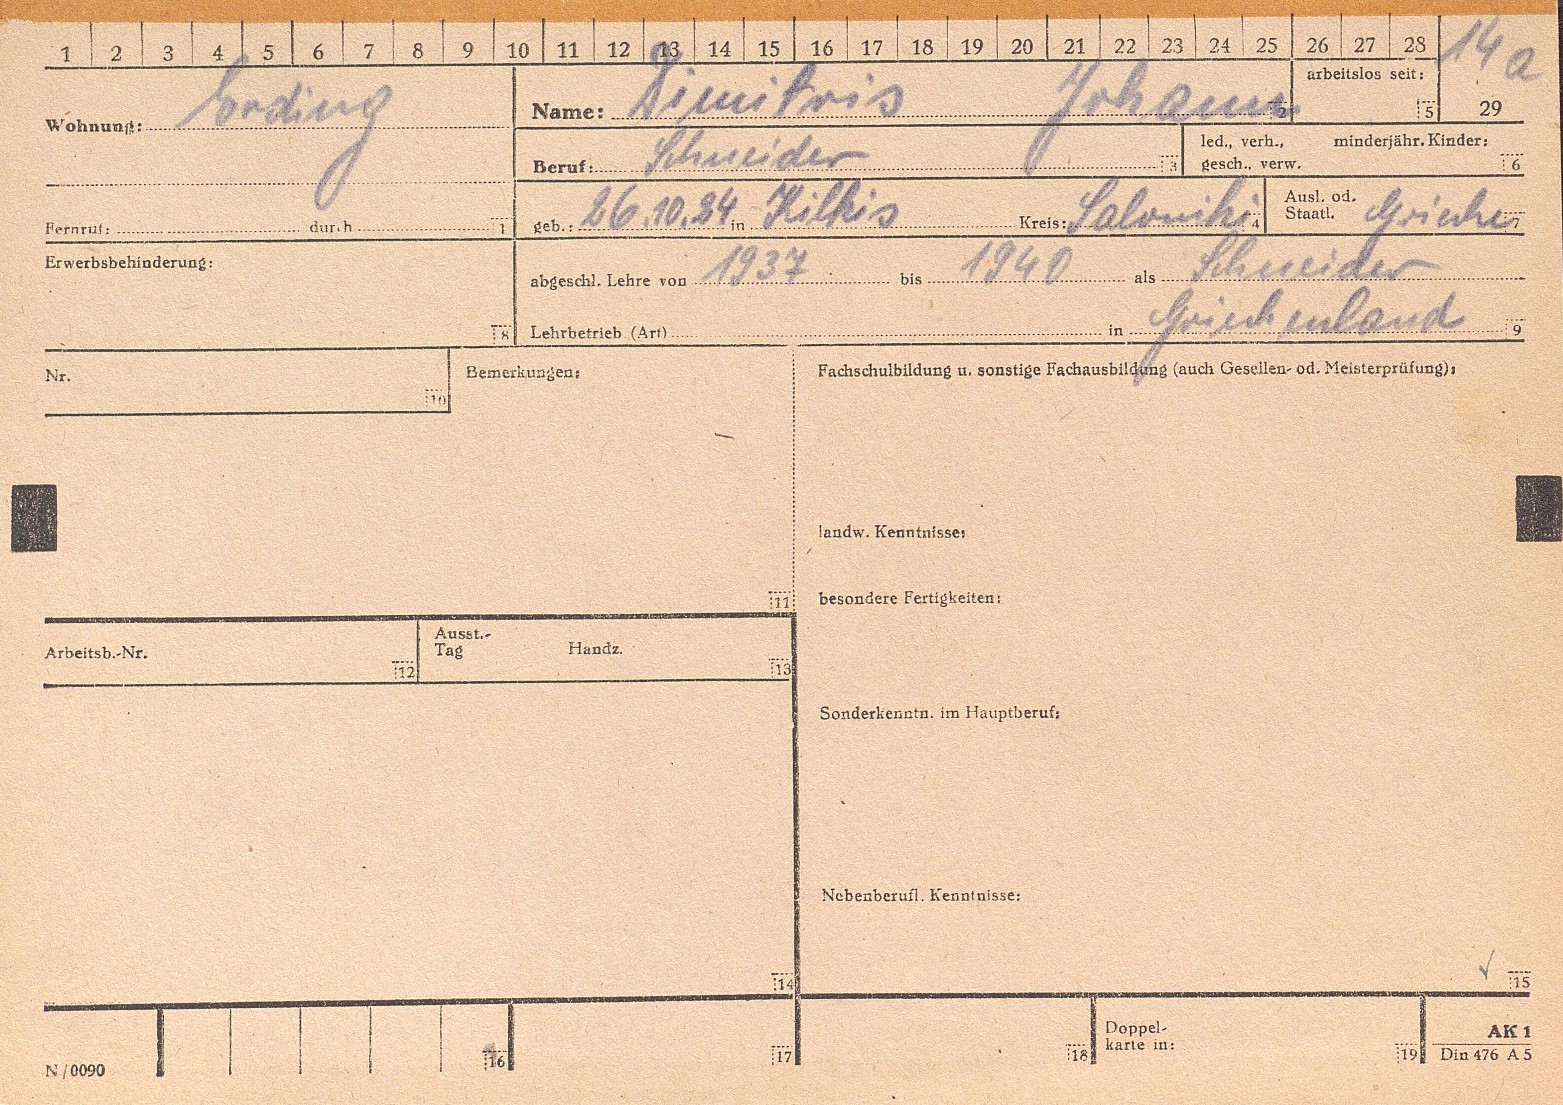 1 2 3 4 5 6 7 8 9 10 11 12 13 14 15 16 17 18 19 20 21 22 23 24 25 26 27 28 14a
Wohnung: Erding
Name: Dimitris Johann 2
arbeitslos seit: 5
29
Beruf: Schneider 3
led., verh., minderjähr. Kinder:
gesch., verw. 6
Fernruf: durch 1
geb.: 26.10.24 in Kilkis Kreis: Saloniki 4
Ausl. od.
Staatl. Grieche 7
Erwerbsbehinderung:
8
abgeschl. Lehre von 1937 bis 1940 als Schneider
Lehrbetrieb (Art) in Griechenland 9
Nr.
10
Bemerkungen:
11
Fachschulbildung u. sonstige Fachausbildung (auch Gesellen- od. Meisterprüfung):
landw. Kenntnisse:
besondere Fertigkeiten:
Arbeitsb.-Nr. 12
Ausst.-
Tag Handz. 13
Sonderkenntn. im Hauptberuf:
Nebenberufl. Kenntnisse:
14
15
N/0090
16
17
18
Doppel-
karte in: 19
AK 1
Din 476 A 5